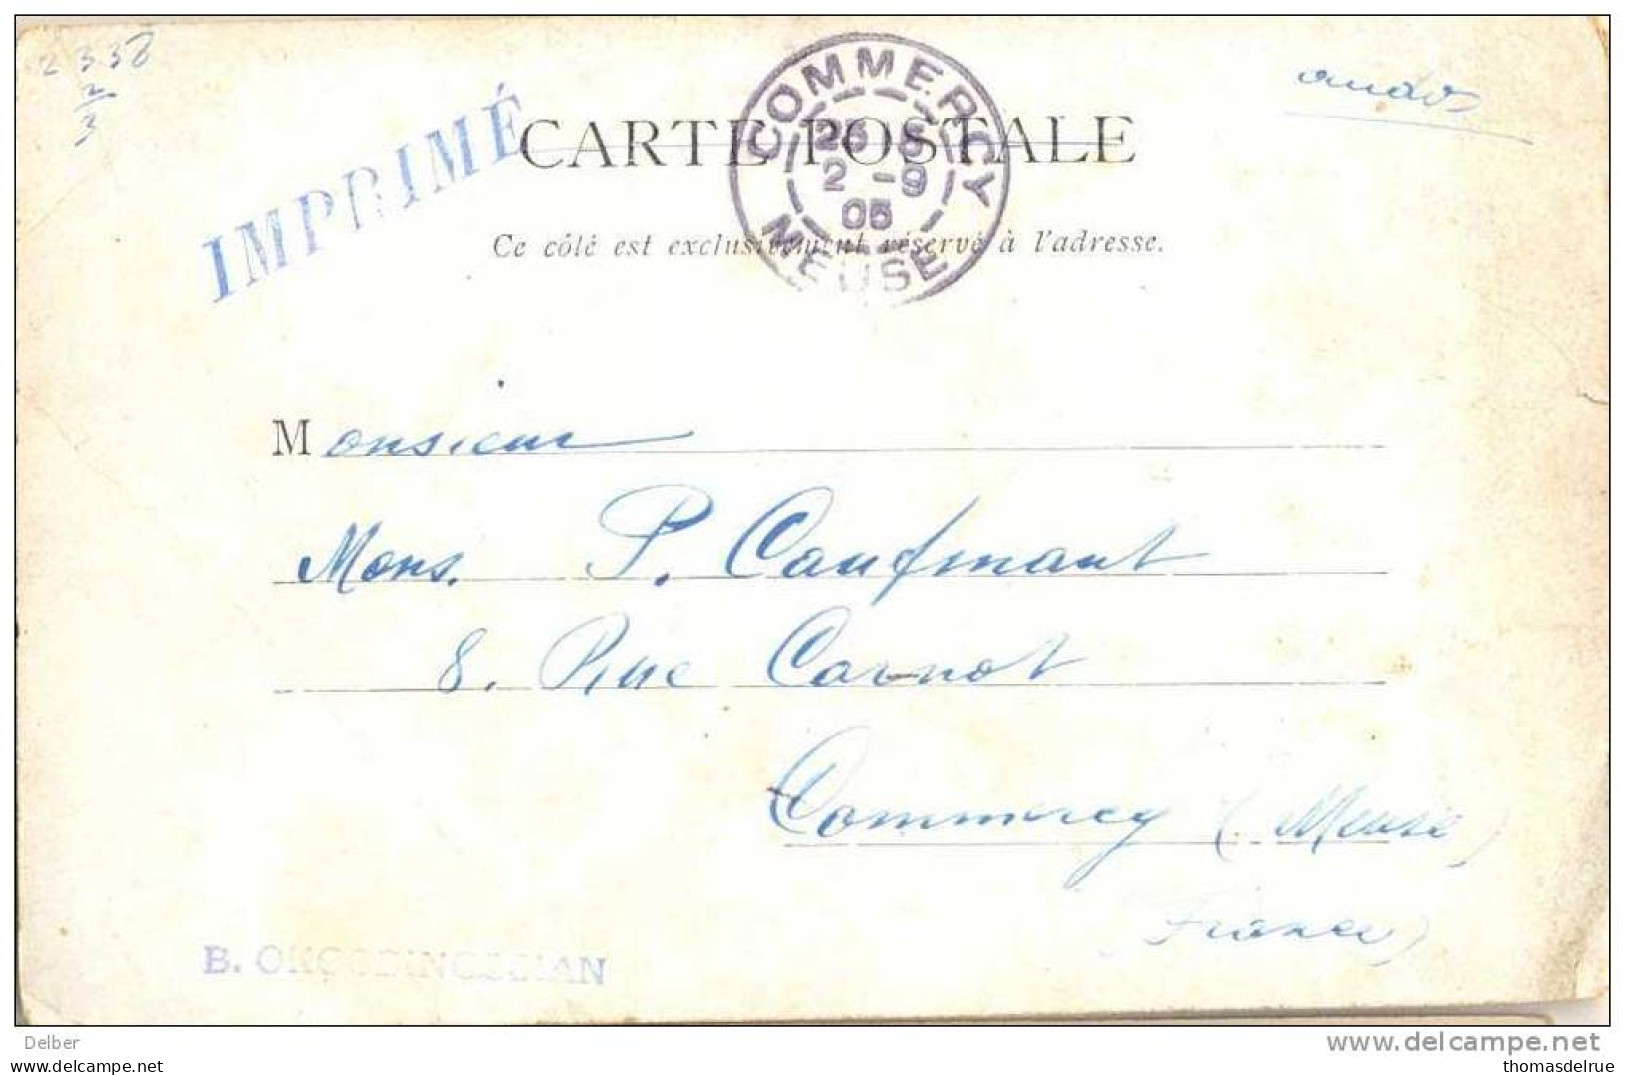 2 3 3 8
2
3
IMPRIMÉ
COMMERCY
2 -9
05
MEUSE
CARTE POSTALE
Ce côté est exclusivement réservé à l'adresse.
Monsieur
Mons. P. Caufmant
8. Rue Carnot
Commercy (Meuse)
(France)
B.
Delber
www.delcampe.net
thomasdelrue